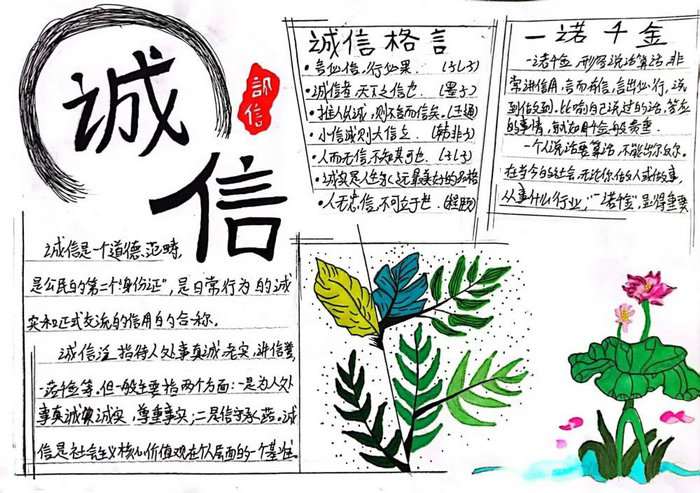 诚信
诚信
诚信是一个道德范畴,
是公民的第二个"身份证",是日常行为的诚
实和正式交流的信用的合称。
诚信注 指待人处事真诚、老实、讲信誉,
一诺千金等,但一般主要指两个方面:一是为人处
事真诚诚实,尊重事实;二是信守承诺。诚
信是社会主义核心价值观在个人层面的一个基准。
诚信格言
·言必信,行必果。(孔子)
·诚信者,天下之信也.(墨子)
·推人以诚,则不言而信矣。(王通)
·小信诚则大信立。(韩非子)
·人而无信,不知其可也.(孔子)
·诚实是人生永远最美好的品格
·人无忠信,不可立于世.(程颐)
一诺千金
一诺千金,形容说话算话,非
常讲信用,言而有信,言出必行,说
到做到。比喻自己说过的话,答应
的事情,就如千金般贵重.
一个人说话要算话,不能出尔反尔。
在当今的社会,无论你做人或做事,
从事什么行业,"一诺千金",显得重要